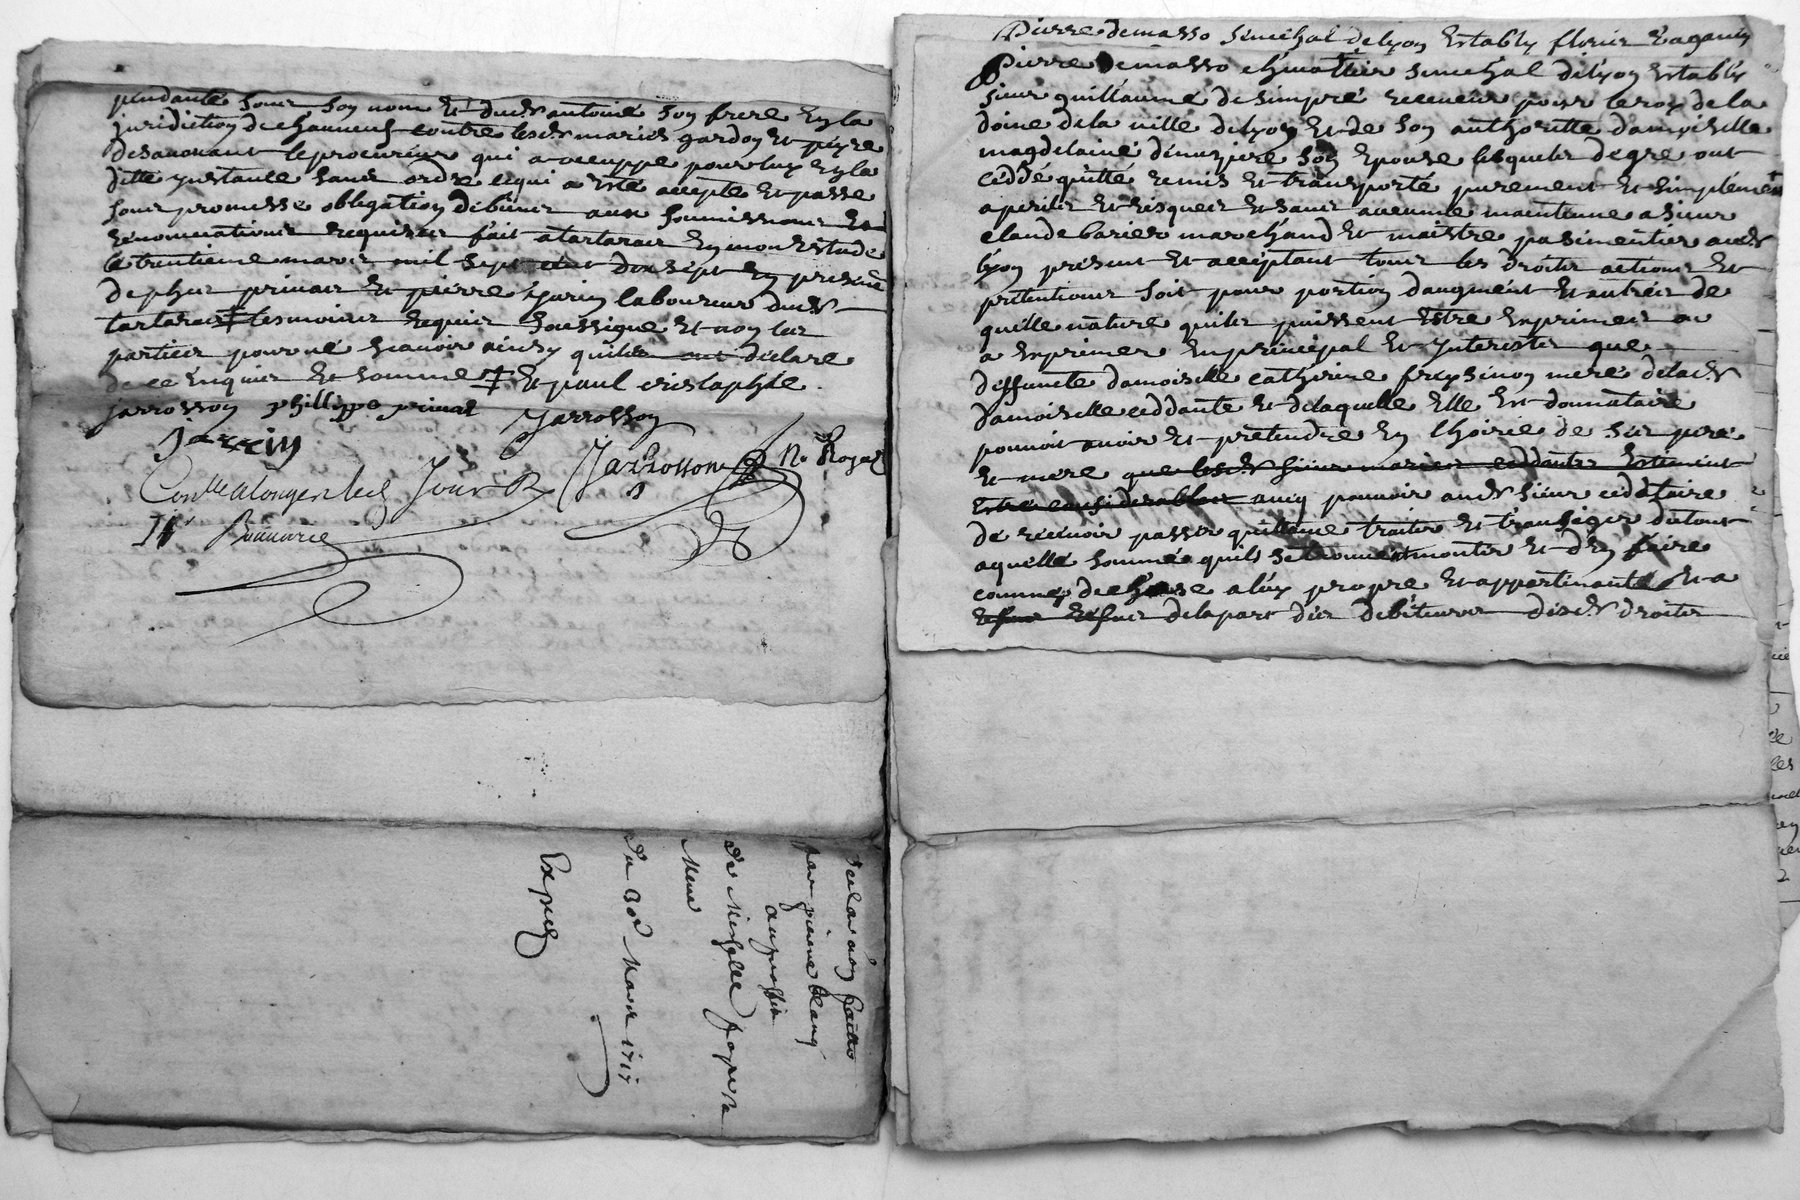 pendante sous son nom et dudt antoine son frere en la
juridiction de chauneuf contre lesdts mariés gardon et
desauouant le procureur qui a occuppé pour luy en la
ditte jnstance sans ordre ce qui a esté accepté et passé
sous promesse obligation de biens aux soumissions et
renonciations requises fait a tartaras en mon estude
le trentieme mars mil sept cent dix sept en presence
de phes primat et pierre jarrin laboureur dudt
tartaras ‡ tesmoins requis soussignes et non les
parties pour ne scauoir ainsy quils ont declaré
de ce enquis et sommé ‡ et paul cristaphle
jarrosson phillippe primat Jarrosson
jarrin
Conlle a Longes led Jour Jarrosson No Royal
Pierre demasso senechal delyon establx
Pierre demasso senechal de lyon establx
sieur guillaume desimpré receueur pour le roy de la
doine de la uille de lyon et de son authoritte damoiselle
magdelaine son epouse lesquels de gré ont
cédde quitte remis et transporté purement et simplement
a perils et risques et sans aucune maintenue a sieur
claude barier marchand et maistre passementier audt
lyon present et acceptant tous les droits actions et
pretentions soit pour portion daugment et autres de
quelle nature quils puissent estre exprimes ou
a exprimer en principal et jnterests que
deffuncte damoiselle catherine freysinon mere de ladt
damoiselle ceddante et de laquelle elle est donnataire
pouuoit auoir et pretendre en lhoirie de ses pere
et mere que lesdts sieurs mariés ceddants estiment
estre considerables auec pouuoir audt sieur ceddataire
de receuoir passer quittance traiter et transiger du tout
a quelle somme quils se treuuent monter et den faire
comme de chose a luy propre et appartenante et a
refus de la part des debiteurs desdts droits
par pierre
du 30e Mars 1717
Expié